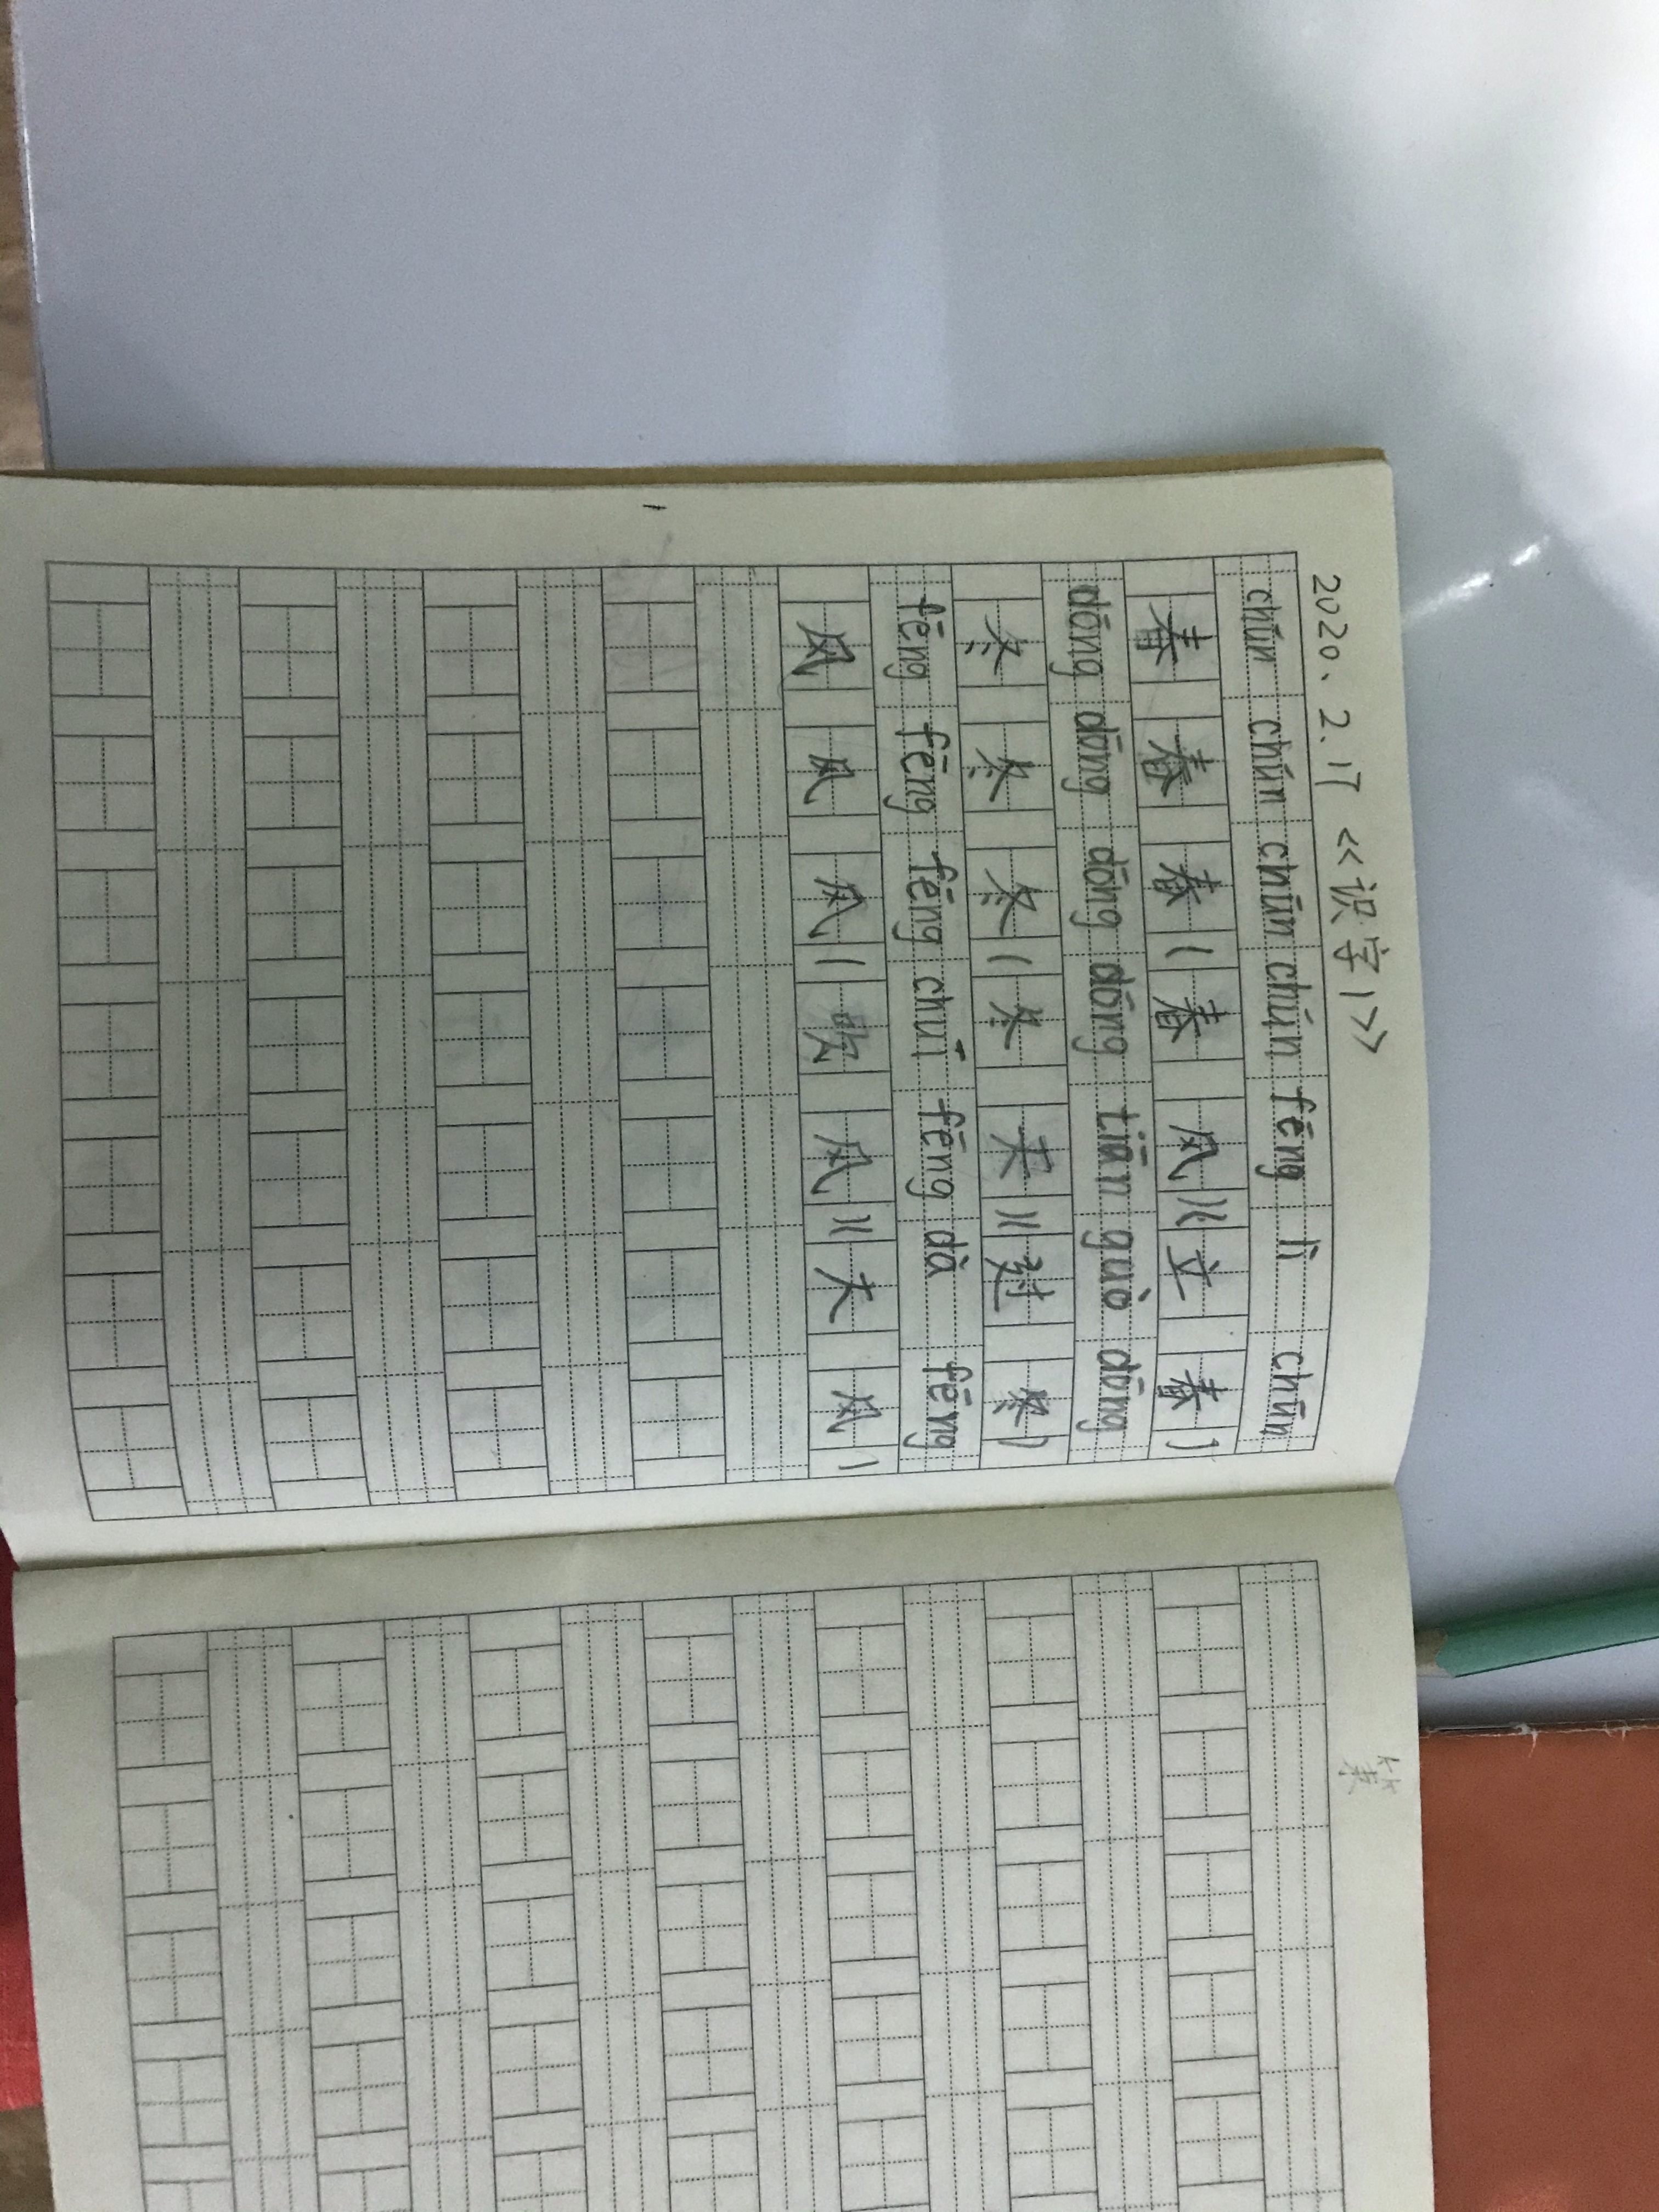 2020、2.17 《识字1》
chūn chūn chūn chūn fēng lì chūn
春 春 春 (春 风)(立 春)
dōng dōng dōng dōng tiān guò dōng
冬 冬 冬 (冬 天)(过 冬)
fēng fēng fēng chuī fēng dà fēng
风 风 风 (吹 风)(大 风)